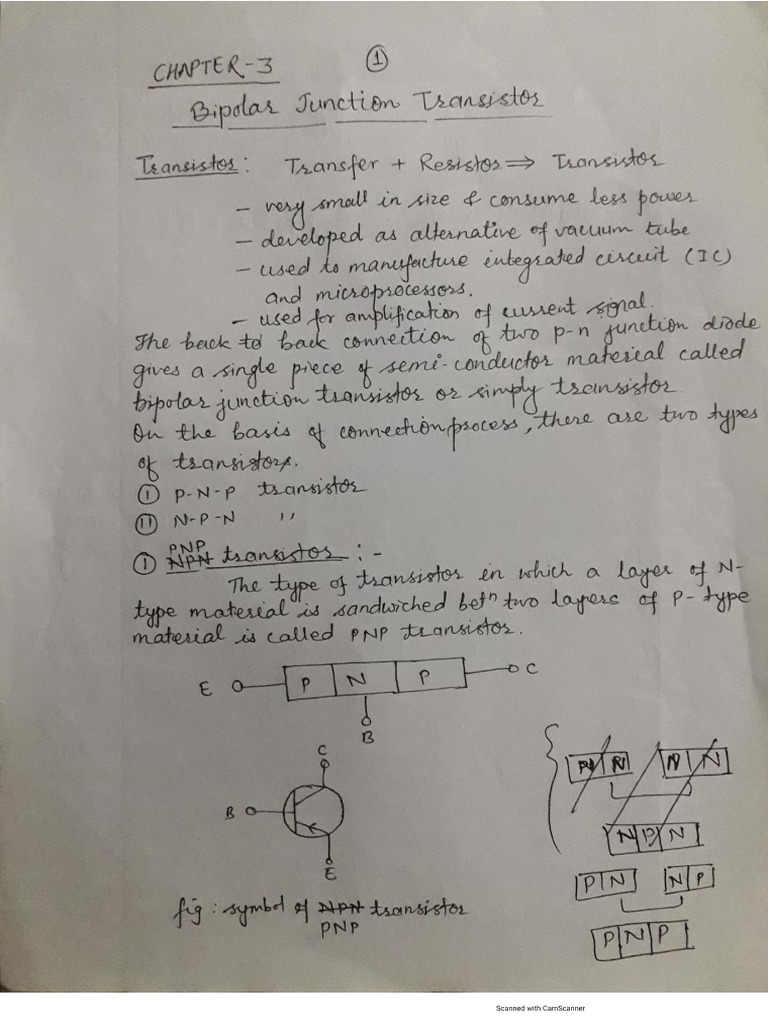 CHAPTER-3
1
Bipolar Junction Transistor
Transistor: Transfer + Resistor ⇒ Transistor
- very small in size & consume less power
- developed as alternative of vacuum tube
- used to manufacture integrated circuit (IC)
and microprocessors.
- used for amplification of current signal.
The back to back connection of two p-n junction diode
gives a single piece of semi-conductor material called
bipolar junction transistor or simply transistor.
On the basis of connection process, there are two types
of transistors.
(I) P-N-P transistor
(II) N-P-N "
PNP
(I) NPN transistor :-
The type of transistor in which a layer of N-
type material is sandwiched betn two layers of P-type
material is called PNP transistor.
E P N P C
B
C
B
E
N P N
P N N P
P N P
fig: symbol of NPN transistor
PNP
Scanned with CamScanner